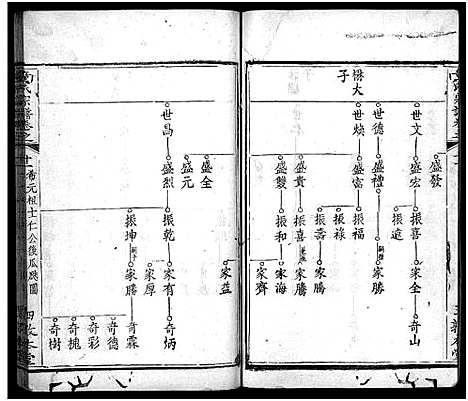 盛發
世文
盛宏
振喜
家全
奇山
振遠
世德
盛禮
家勝
世煥
盛富
振福
振祿
振壽
大
子
盛貴
振喜
家騰
盛雙
振和
家海
家齊
盛全
家益
盛元
世昌
盛烈
振乾
家有
奇炳
家厚
振坤
家騰
奇霖
奇德
奇彩
奇槐
奇樹
氏宗譜卷之
希元祖士仁公後瓜瓞圖